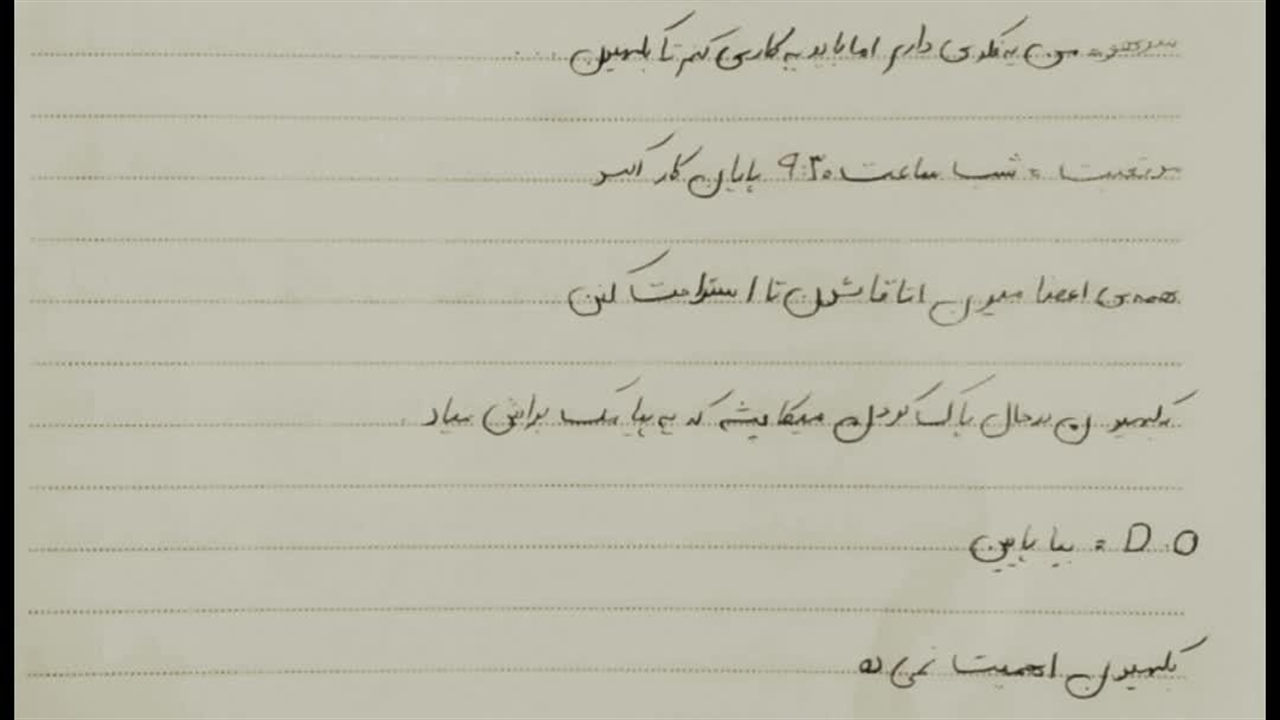 سوهو = من یه فکری دارم اما باید یه کاری کنم تا بکهیون ...
موقعیت = شب ساعت ۹:۳۰ پایان کار اکسو
همه ی اعضا میرن اتاقاشون تا استراحت کنن
بکهیون درحال پاک کردن میکاپشه که یه پیامک براش میاد.
D.O = بیا پایین
بکهیون اهمیت نمی ده